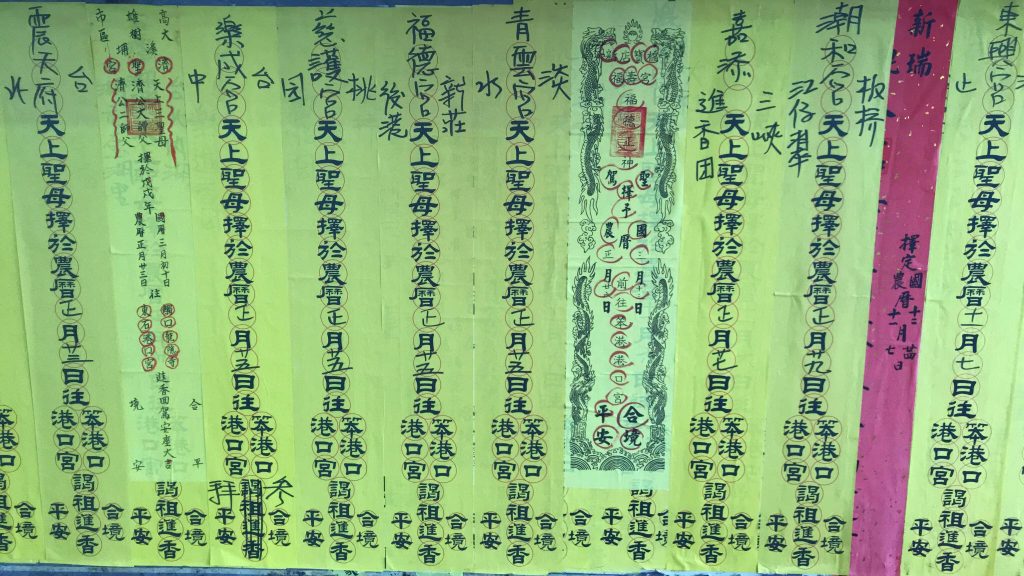 東興宮天上聖母擇於農曆十一月七日往
笨港口
港口宮
謁祖進香
合境
平安
止
新瑞
擇定國
農曆十一月七日
板桥
潮和宮天上聖母擇於農曆正月廿九日往
江仔翠
笨港口
港口宮
謁祖進香
合境
平安
三峽
嘉添
天上聖母擇於農曆正月廿七日往
進香团
笨港口
港口宮
謁祖進香
合境
平安
福德正神
聖駕擇于
國曆
農曆正月
日
前往
港口宮
合境
平安
淡水
青雲宮天上聖母擇於農曆正月廿五日往
笨港口
港口宮
謁祖進香
合境
平安
新莊
福德宮天上聖母擇於農曆正月廿五日往
笨港口
港口宮
謁祖進香
合境
平安
桃园
慈護宮天上聖母擇於農曆正月廿五日往
笨港口
港口宮
謁祖進香
合境
平安
台中
樂成宮天上聖母擇於農曆正月廿五日往
笨港口
港口宮
謁祖進香
參拜
合境
平安
高雄市
大樹區
溪埔
天上聖母
濟公
擇於戊戌年
國曆三月初十日
農曆正月廿三日
往
進香回駕安座大吉
合境平安
台北
震天府天上聖母擇於農曆正月廿三日往
笨港口
港口宮
謁祖進香
合境
平安
笨港口
謁祖進香
合境